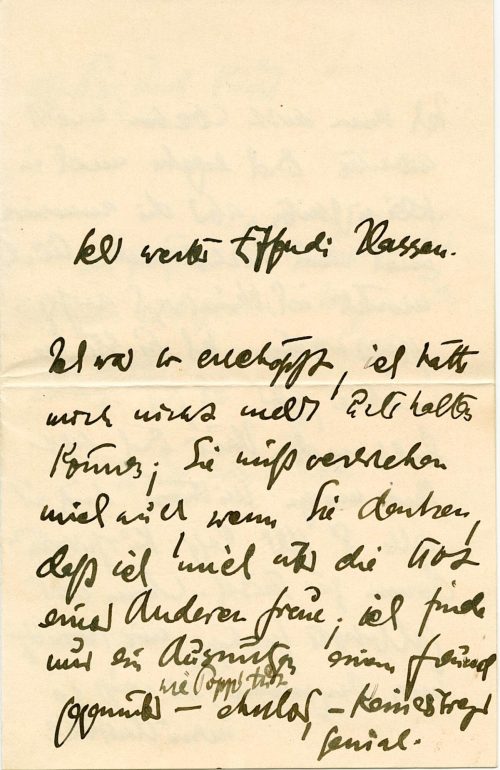 Sehr werter Effendi Hassan.
Ich war so erschöpft, ich hätte
mich nicht mehr
können; Sie mißverstehen
mich auch, wenn Sie denken,
daß ich mich über die Not
einer Anderen freue; ich finde
nur ein Ausnutzen einem Freund
wie
gegenüber – ehrlos, – keineswegs
genial.